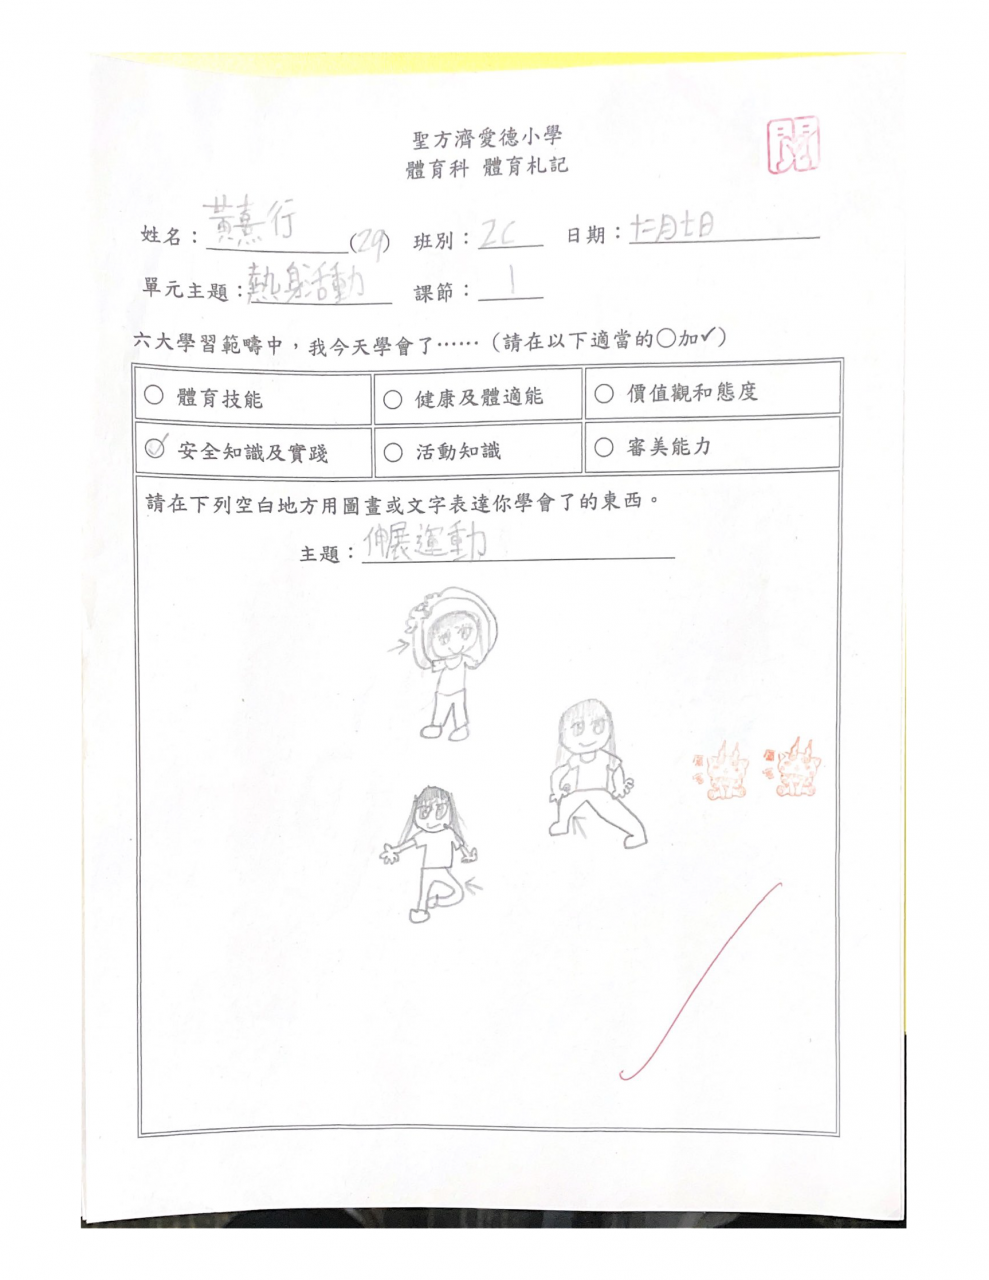 聖方濟愛德小學
體育科 體育札記
閱
姓名：黃熹行(29) 班別：2C 日期：十二月七日
單元主題：熱身活動 課節：1
六大學習範疇中，我今天學會了⋯⋯（請在以下適當的○加✓）
○ 體育技能 ○ 健康及體適能 ○ 價值觀和態度
✓ 安全知識及實踐 ○ 活動知識 ○ 審美能力
請在下列空白地方用圖畫或文字表達你學會了的東西。
主題：伸展運動